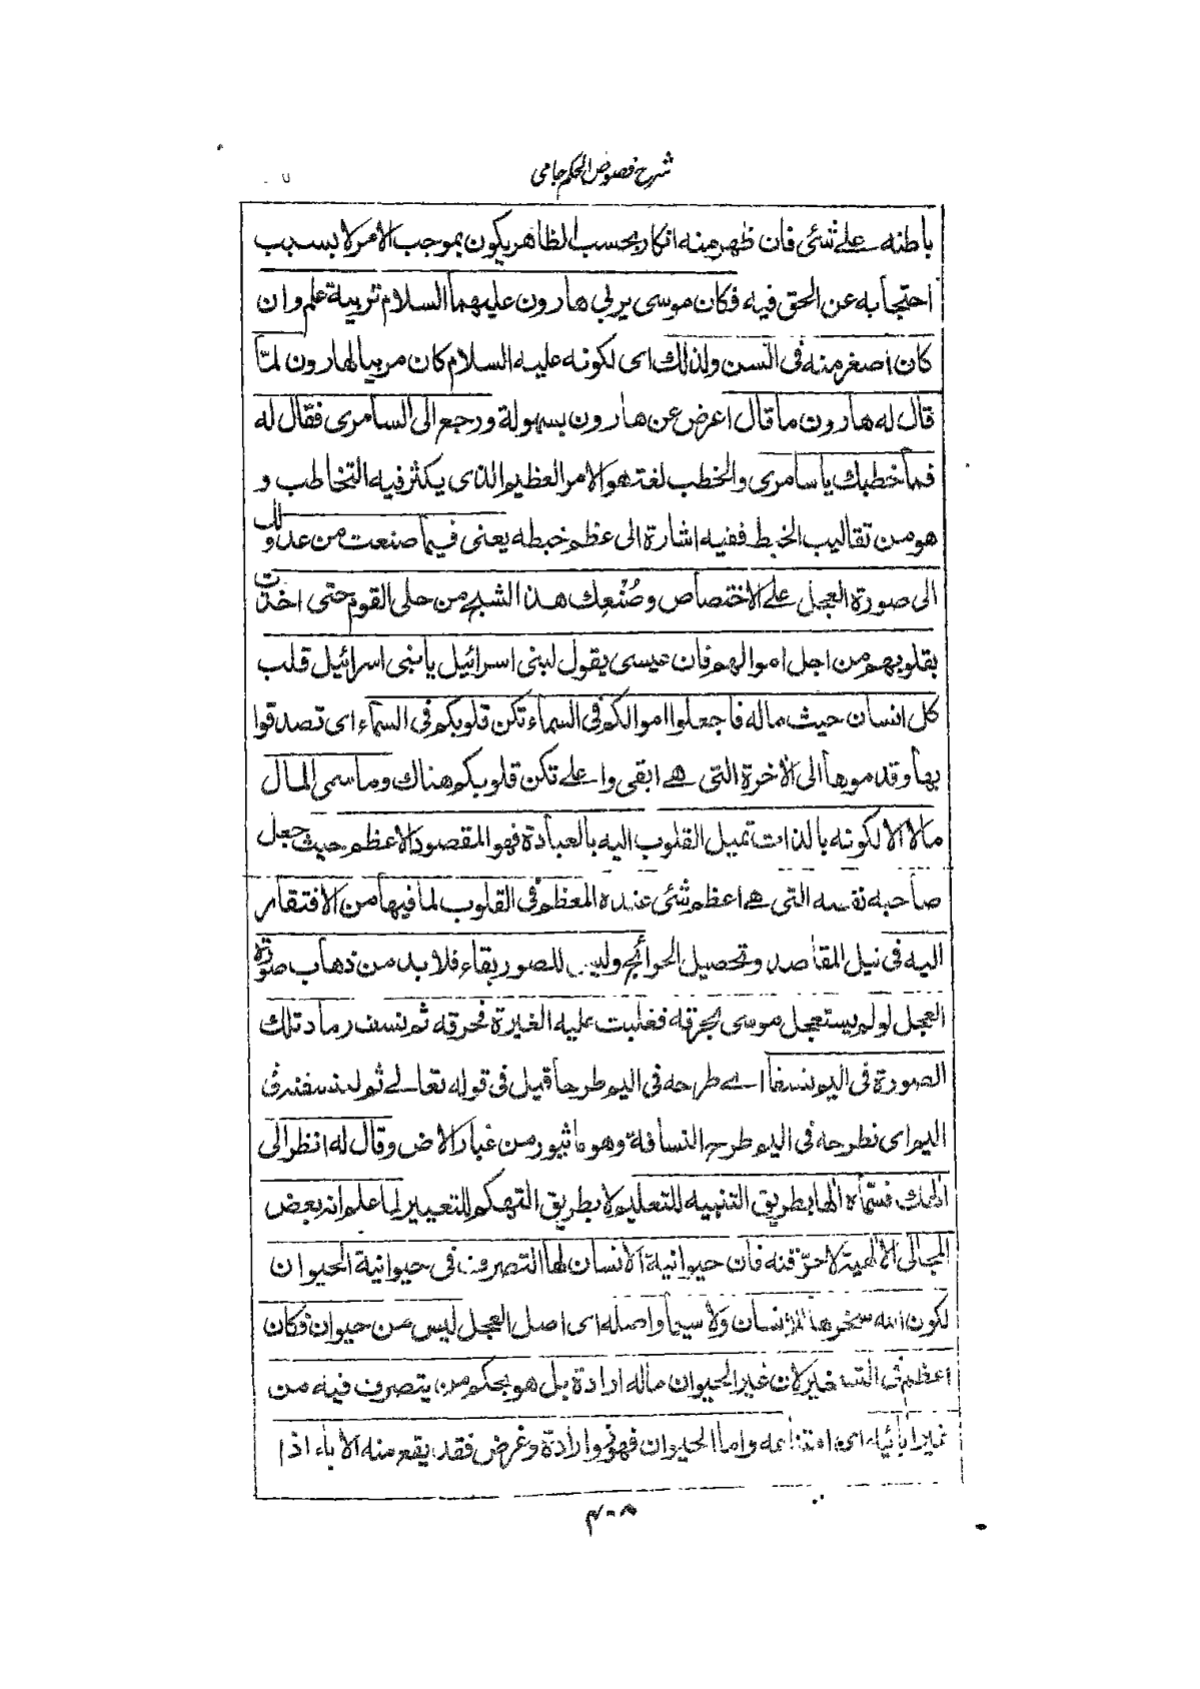 شرح فصوص الحكم جامى
باطنه على شئ فان ظهر منه انكار بحسب الظاهر يكون بموجب الامر لا بسبب
احتجابه عن الحق فيه فكان موسى يربى هارون عليهما السلام تربية علم وان
كان اصغر منه فى السن ولذلك اى لكونه عليه السلام كان مربيا لهارون لمّا
قال له هارون ما قال اعرض عن هارون بسهولة ورجع الى السامرى فقال له
فما خطبك يا سامرى والخطب لغة هو الامر العظيم الذى يكثر فيه التخاطب و
هو من تقاليب الخبط ففيه اشارة الى عظم خبطه يعنى فيما صنعت من عدولك
الى صورة العجل على الاختصاص وصُنْعِك هذا الشبح من حلى القوم حتى اخذت
بقلوبهم من اجل اموالهم فان عيسى يقول لبنى اسرائيل يا بنى اسرائيل قلب
كل انسان حيث ماله فاجعلوا اموالكم فى السماء تكن قلوبكم فى السماء اى تصدقوا
بها وقدموها الى الآخرة التى هى ابقى واعلى تكن قلوبكم هناك وما سمى المال
مالا الا لكونه بالذات تميل القلوب اليه بالعبادة فهو المقصود الاعظم حيث جعل
صاحبه نفسه التى هى اعظم شئ عنده المعظم فى القلوب لما فيها من الافتقار
اليه فى نيل المقاصد وتحصيل الحوائج وليس للصور بقاء فلا بد من ذهاب صورة
العجل لو لم يستعجل موسى بحرقه فغلبت عليه الغيرة فحرقه ثم نسف رماد تلك
الصورة فى اليم نسفا اى طرحه فى اليم طرحا قيل فى قوله تعالى ثم لننسفنه فى
اليم اى نطرحه فى اليم طرح النسافة وهو ما يثور من غبار الارض وقال له انظر الى
الهك فسمّاه الها بطريق التنبيه للتعليم لا بطريق التهكم للتعيير لما علم انه بعض
المجالى الالهية لاحرّقنه فان حيوانية الانسان لها التصرف فى حيوانية الحيوان
لكون الله سخرها للانسان ولا سيما واصله اى اصل العجل ليس من حيوان فكان
اعظم فى التسخير لان غير الحيوان ماله ارادة بل هو بحكم من يتصرف فيه من
غير ابائه اى امتناعه واما الحيوان فهو ذو ارادة وغرض فقد يقع منه الاباء اذا
٤٠٨